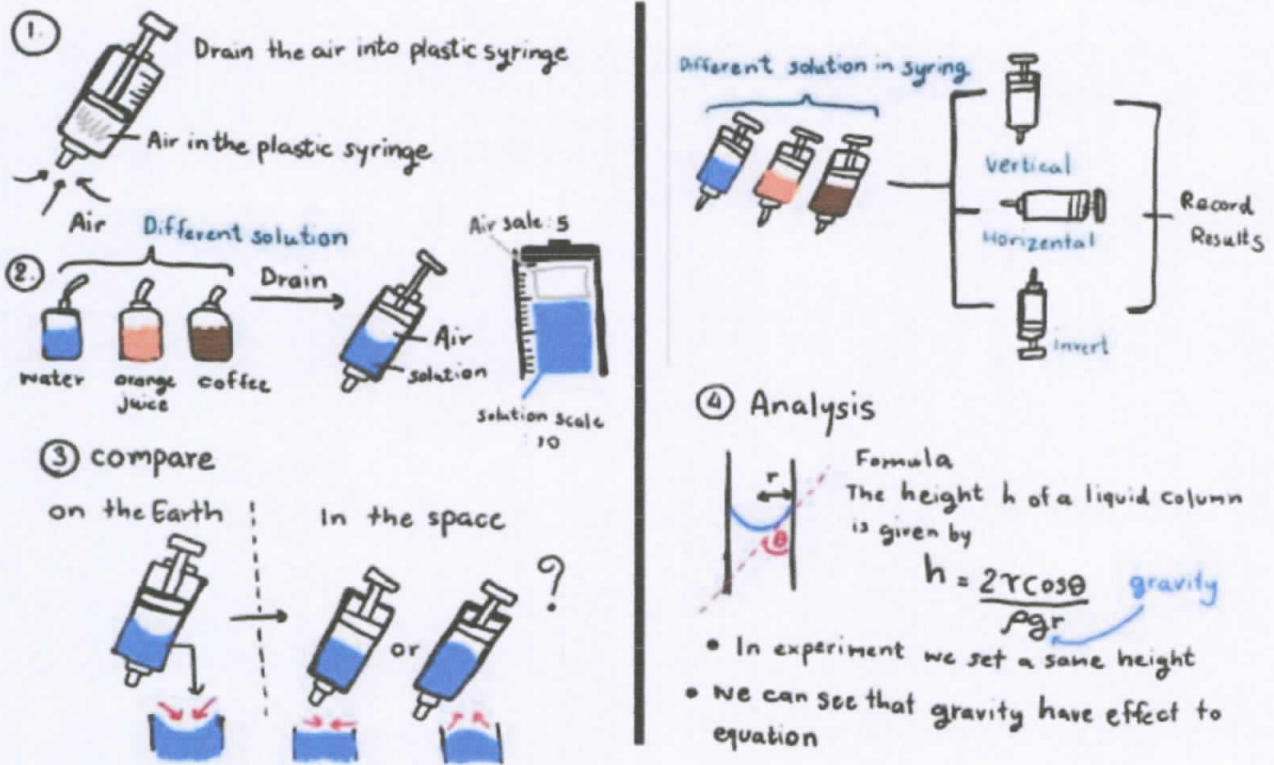 1.
Drain the air into plastic syringe
Air in the plastic syringe
Air
Different solution
2.
Drain
water
orange
juice
coffee
Air
solution
Air sale: 5
solution scale
: 10
3 compare
on the Earth
In the space
or
?
Different solution in syring
Vertical
Horizental
invert
Record
Results
4 Analysis
r
θ
Formula
The height h of a liquid column
is given by
h = 2rcosθ
ρgr
gravity
• In experiment we set a same height
• we can see that gravity have effect to
equation